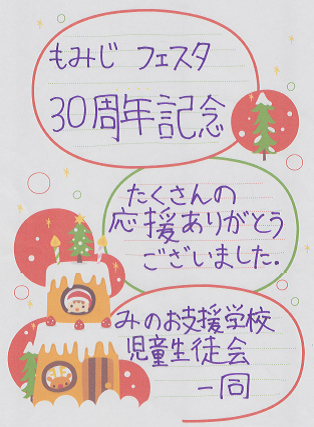 もみじ フェスタ
30周年記念
たくさんの
応援ありがとう
ございました.
みのお支援学校
児童生徒会
一同